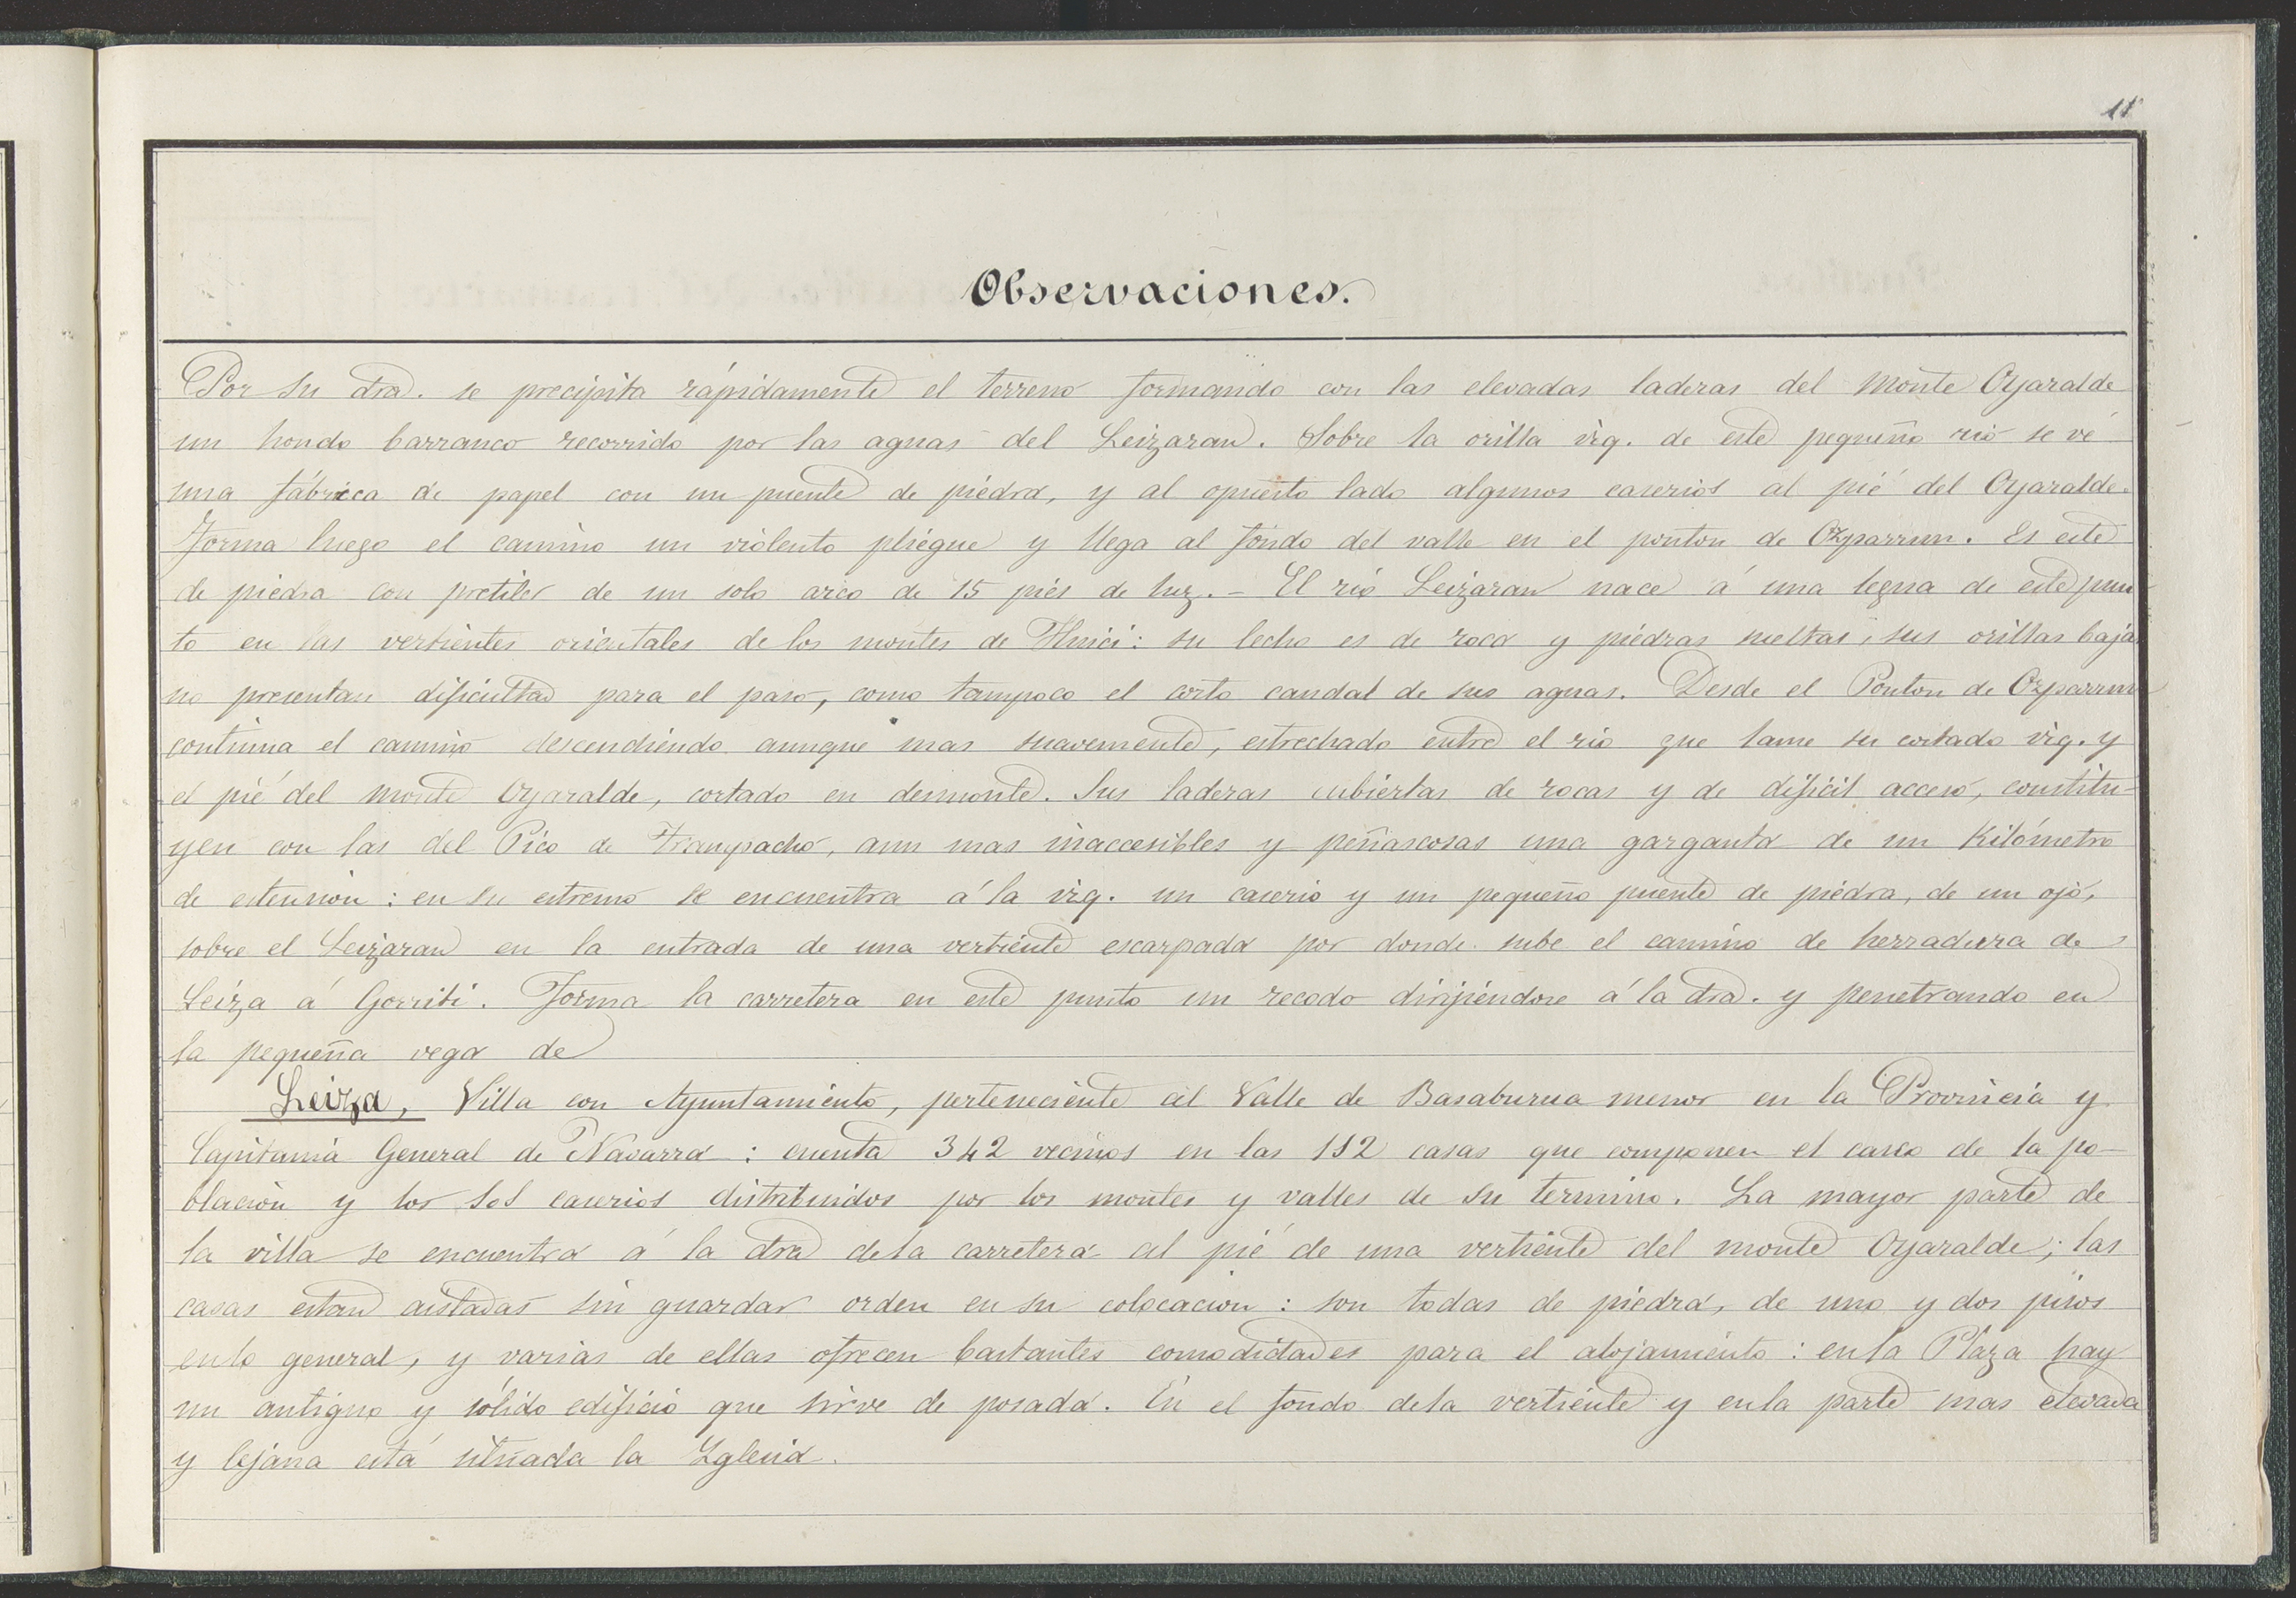 11
Observaciones.
Por su dra. se precipita rápidamente el terreno formando con las elevadas laderas del Monte Oyaralde
un hondo barranco recorrido por las aguas del Leizaran. Sobre la orilla izq. de este pequeño rio se vé
una fábrica de papel con un puente de piedra, y al opuesto lado algunos caserios al pié del Oyaralde.
Forma luego el camino un violento pliegue y llega al fondo del valle en el ponton de Ozparrun. Es este
de piedra con pretiles de un solo arco de 15 piés de luz. - El rio Leizaran nace á una legua de este pun
to en las vertientes orientales de los montes de : su lecho es de roca y piedras sueltas, sus orillas bajas
no presentan dificultad para el paso, como tampoco el corto caudal de sus aguas. Desde el Ponton de Ozparrun
continua el camino descendiendo aunque mas suavemente, estrechado entre el rio que lame su costado izq. y
el pié del monte Oyaralde, cortado en desmonte. Sus laderas cubiertas de rocas y de dificil acceso, constitu-
yen con las del Pico de Trampacho, aun mas inaccesibles y peñascosas una garganta de un Kilómetro
de estension: en su estremo se encuentra á la izq. un caserio y un pequeño puente de piedra, de un ojo,
sobre el Leizaran en la entrada de una vertiente escarpada por donde sube el camino de herradura de
Leiza á Gorriti. Forma la carretera en este punto un recodo dirijiendose á la dra. y penetrando en
la pequeña vega de
Leiza, Villa con Ayuntamiento, perteneciente al Valle de Basaburua menor en la Provincia y
Capitania General de Navarra: cuenta 342 vecinos en las 112 casas que componen el casco de la po-
blacion y los caserios distribuidos por los montes y valles de su termino. La mayor parte de
la villa se encuentra á la dra de la carretera al pié de una vertiente del monte Oyaralde; las
casas estan aisladas sin guardar orden en su colocacion: son todas de piedra, de uno y dos pisos
en lo general, y varias de ellas ofrecen bastantes comodidades para el alojamiento: en la Plaza hay
un antiguo y sólido edificio que sirve de posada. En el fondo de la vertiente y en la parte mas elevada
y lejana está situada la Yglesia.